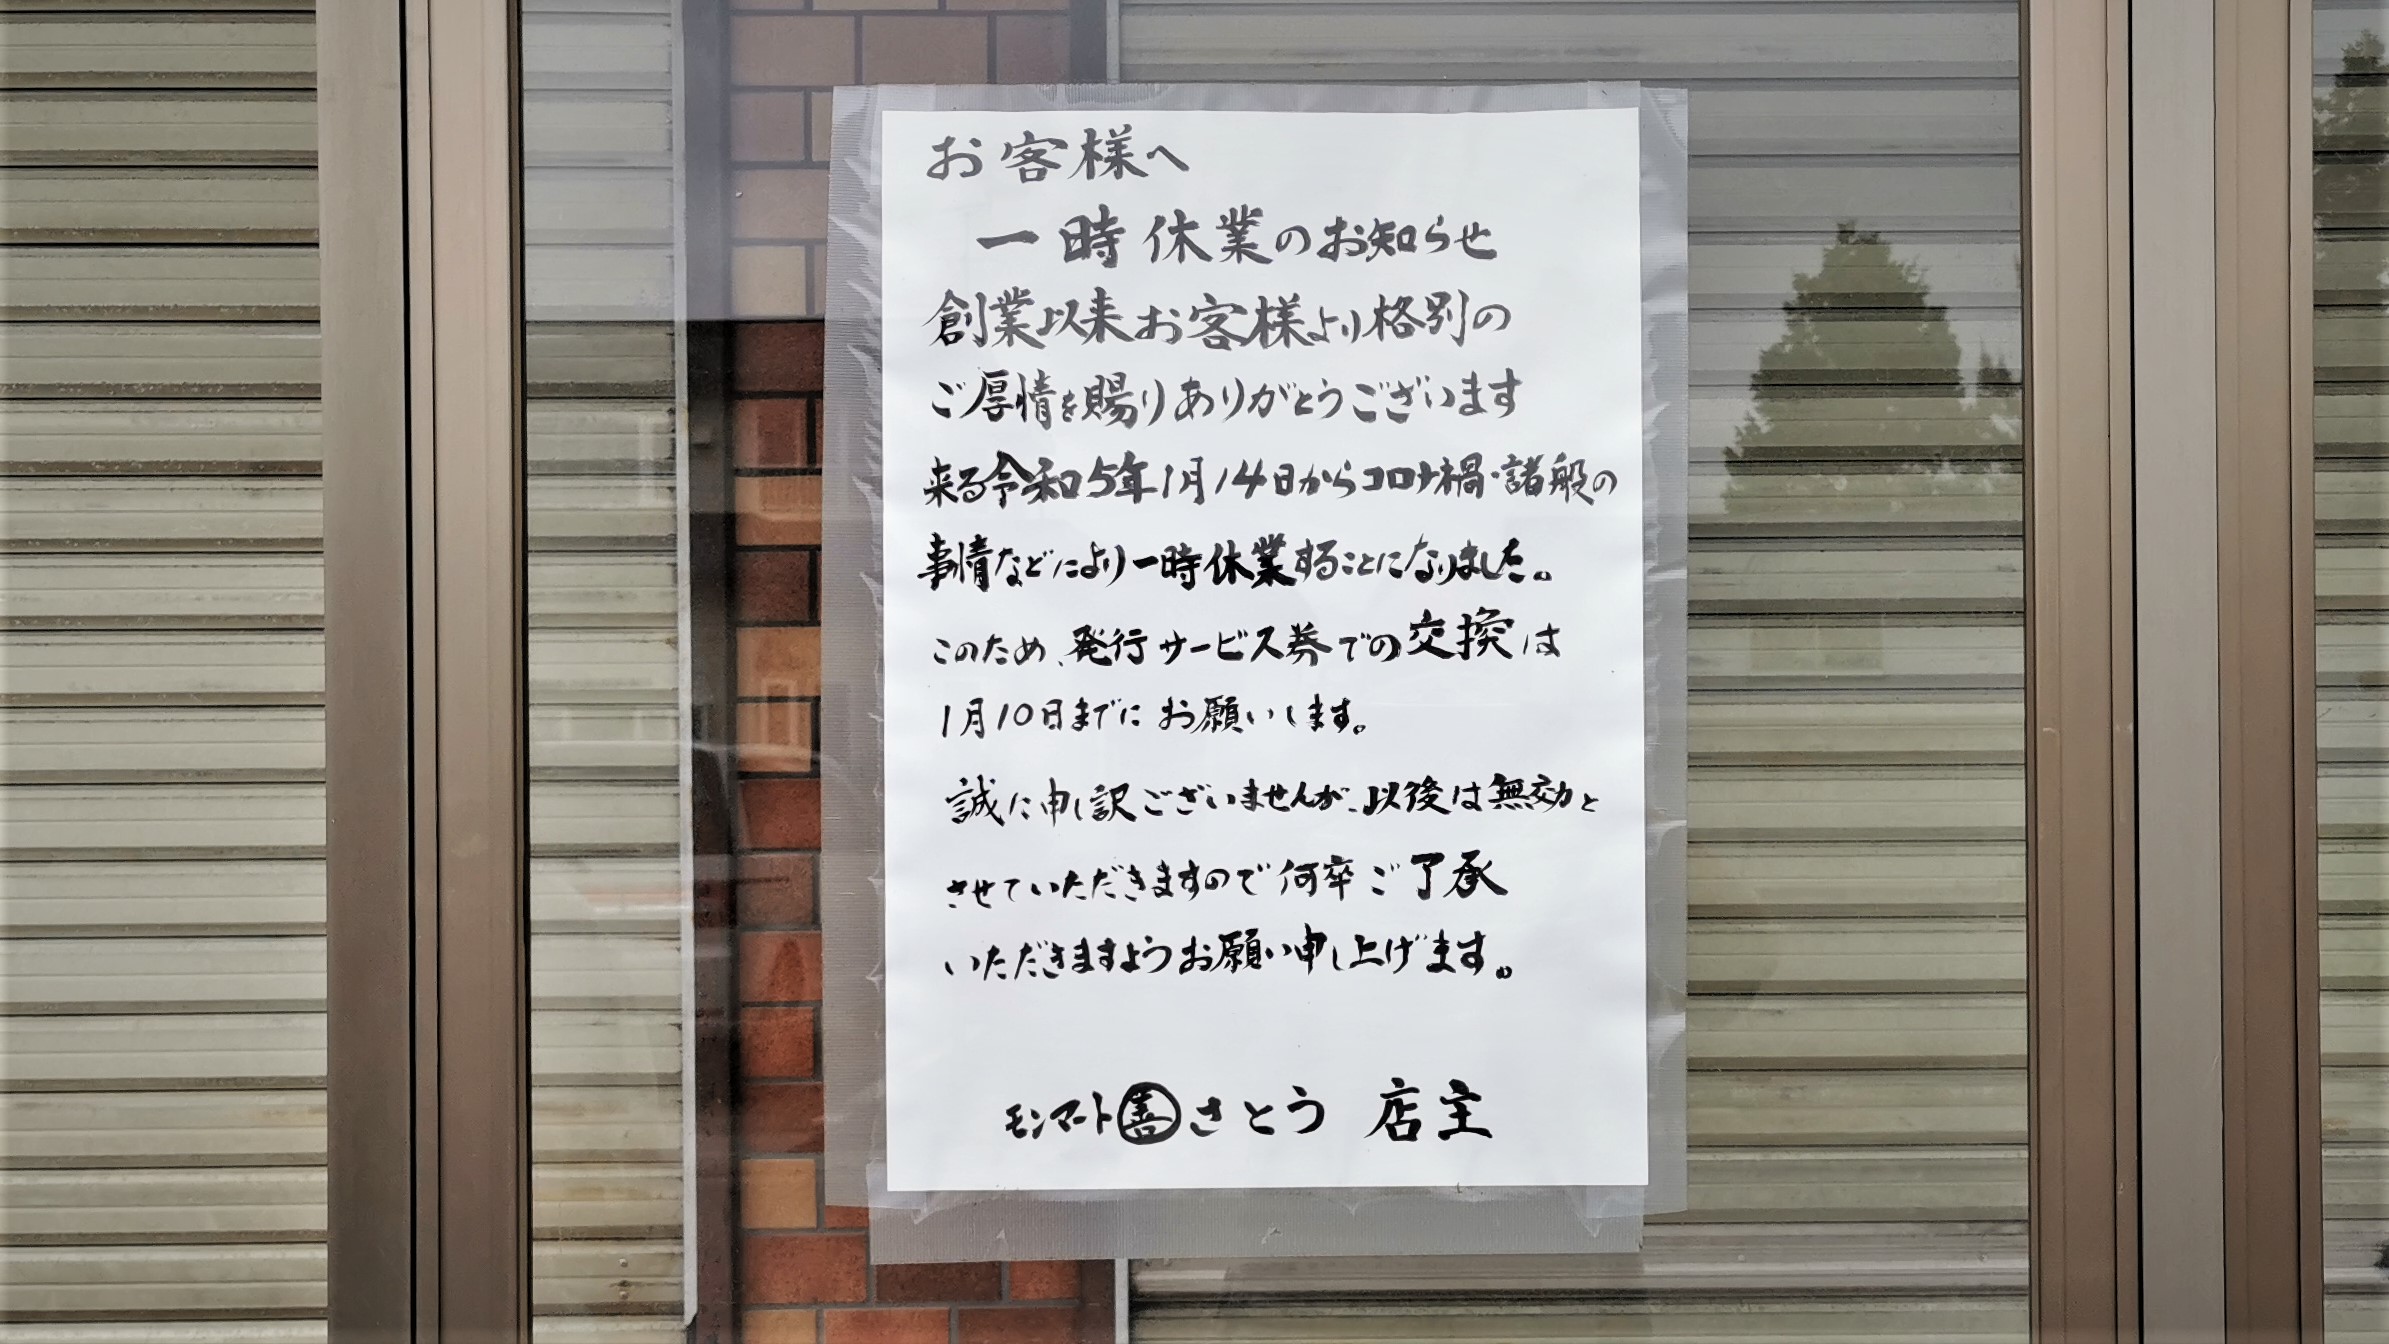 お客様へ
一時休業のお知らせ
創業以来お客様より格別の
ご厚情を賜りありがとうございます
来る令和5年1月14日からコロナ禍・諸般の
事情などにより一時休業することになりました。
このため、発行サービス券での交換は
1月10日までにお願いします。
誠に申し訳ございませんが、以後は無効と
させていただきますので何卒ご了承
いただきますようお願い申し上げます。
モンマート㊀さとう 店主